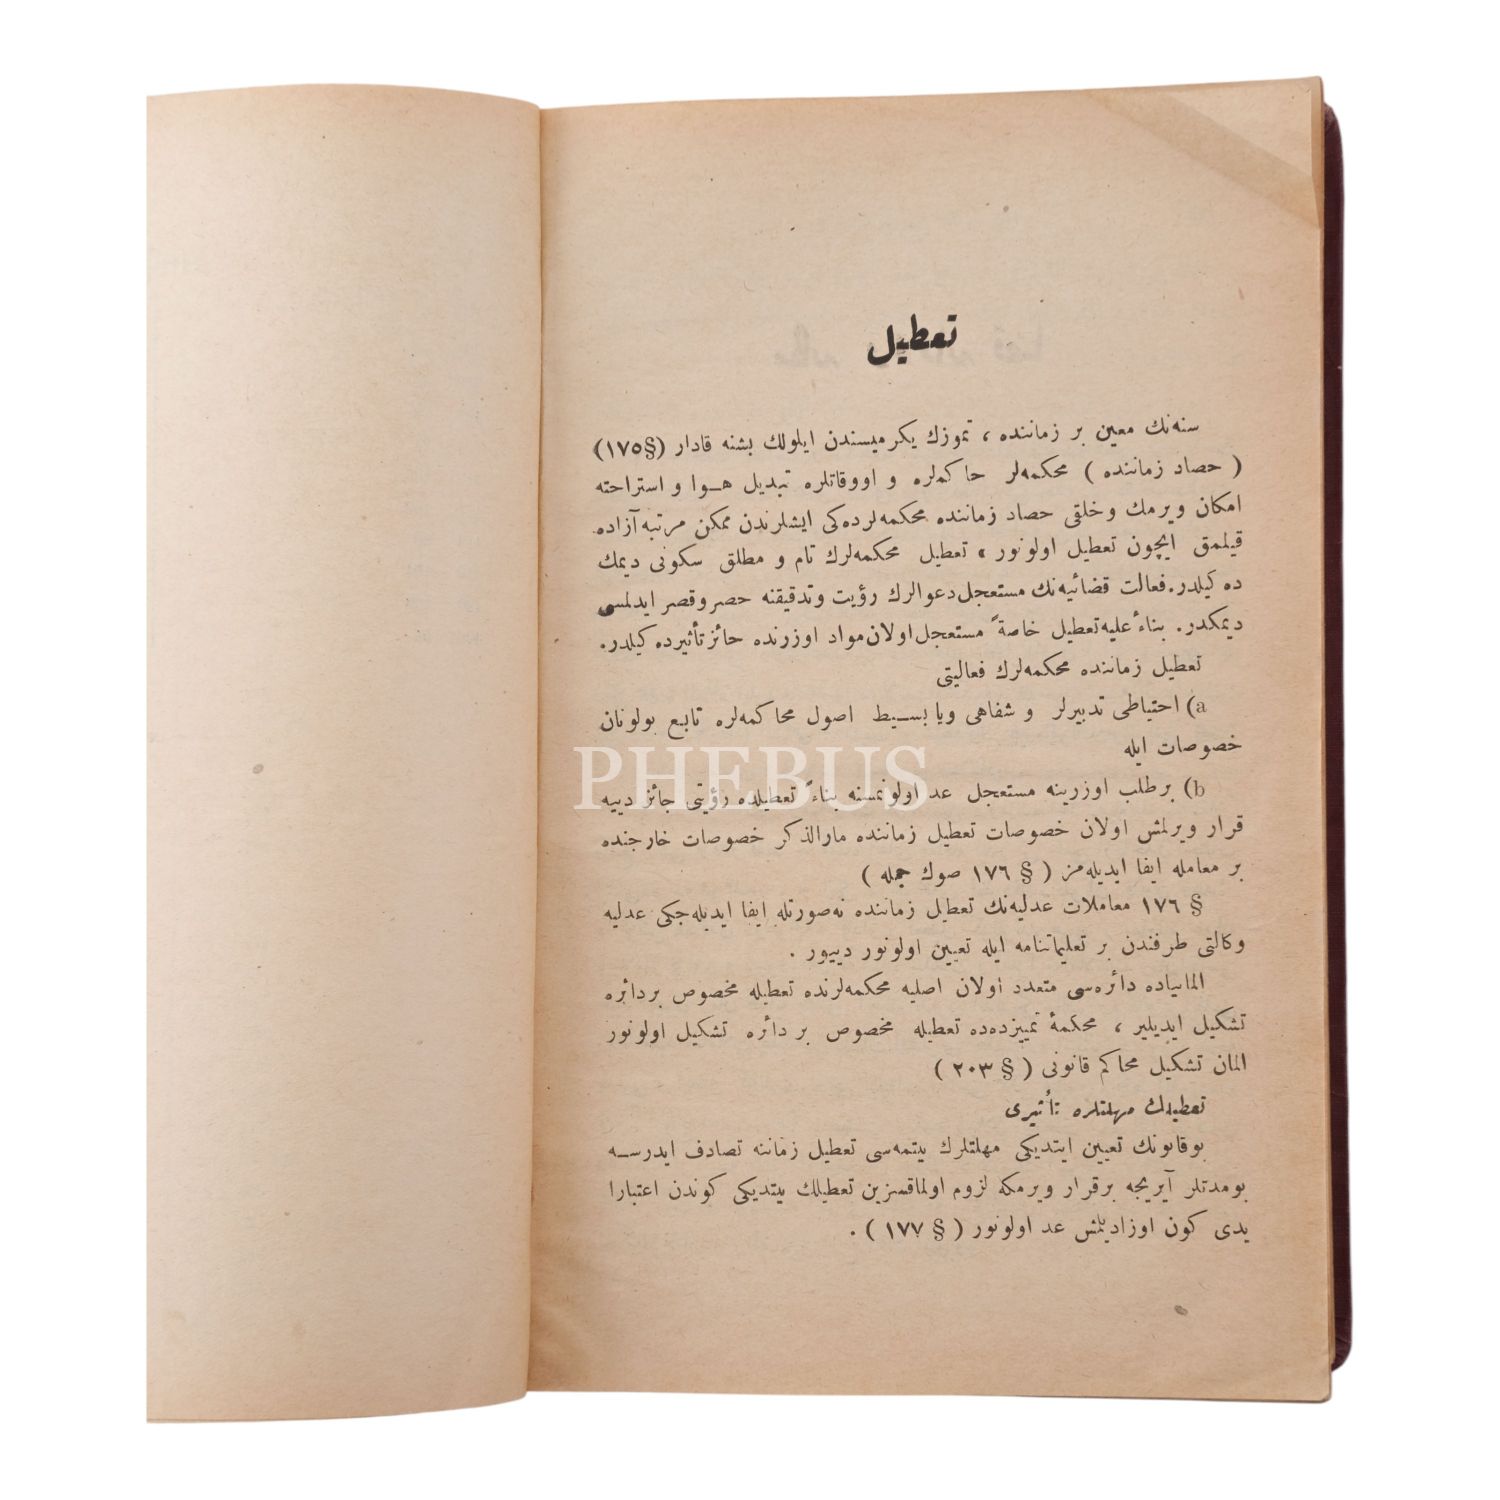 تعطیل
سنه‌نك معین بر زماننده ، تموزك یكرمیسندن ایلولك بشنه قادار (§١٧٥)
( حصاد زماننده ) محكمه‌لر حاكمه‌لره و اووقاتلره تبدیل هـوا و استراحته
امكان ویرمك وخلقی حصاد زماننده محكمه‌لرده‌كی ایشلرندن ممكن مرتبه آزاده
قیلمق ایچون تعطیل اولونور ، تعطیل محكمه‌لرك تام و مطلق سكونی دیمك
ده كیلدر. فعالت قضائیه‌نك مستعجل دعوالرك رؤیت وتدقیقنه حصر وقصر ایدلمسی
دیمكدر. بناءً علیه تعطیل خاصةً مستعجل اولان مواد اوزرنده حائز تأثیر ده كیلدر.
تعطیل زماننده محكمه‌لرك فعالیتی
a) احتیاطی تدبیرلر و شفاهی ویا بسـیط اصول محاكمه‌لره تابع بولونان
خصوصات ایله
b) برطلب اوزرینه مستعجل عد اولونمسنه بناءً تعطیلده رؤیتی جائز دییه
قرار ویرلمش اولان خصوصات تعطیل زماننده مارالذكر خصوصات خارجنده
بر معامله ایفا ایدیله‌مز ( § ١٧٦ صوك جمله )
§ ١٧٦ معاملات عدلیه‌نك تعطیل زماننده نه‌صورتله ایفا ایدیله‌جكی عدلیه
وكالتی طرفندن بر تعلیماتنامه ایله تعیین اولونور دییور .
المانیاده دائره‌سی متعدد اولان اصلیه محكمه‌لرنده تعطیله مخصوص بردائره
تشكیل ایدیلیر ، محكمهٔ تمییزده‌ده تعطیله مخصوص بر دائره تشكیل اولونور
المان تشكیل محاكم قانونی ( § ٢٠٣ )
تعطیلك مهلتلره تأثیری
بوقانونك تعیین ایتدیكی مهلتلرك بیتمه‌سی تعطیل زماننه تصادف ایدرسـه
بومدتلر آیریجه برقرار ویرمكه لزوم اولماقسزین تعطیلك بیتدیكی كوندن اعتبارا
یدی كون اوزادیلمش عد اولونور ( § ١٧٧ ) .
PHEBUS